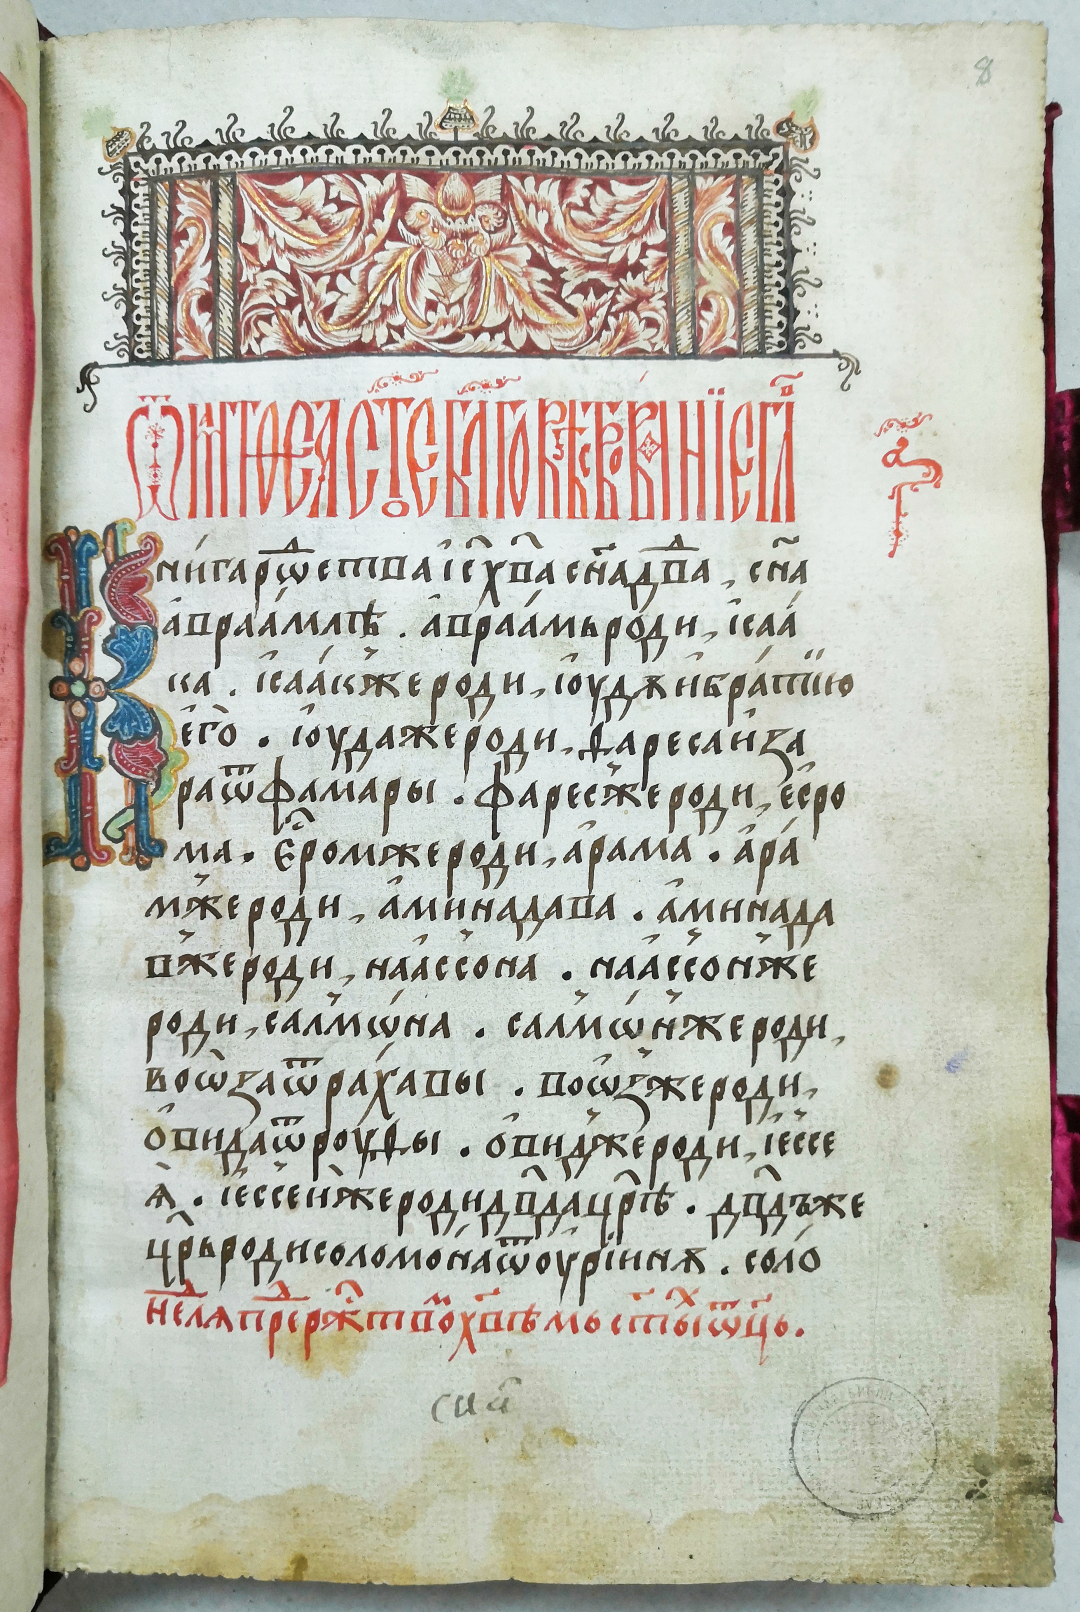 8
Ѿ маѳеа ст҃ое бл҃говѣствованїе гл҃
а҃
Кни́га рѡⷣства і҆с҃ хв҃а сн҃а дв҃ⷣа, сн҃а
а҆враа́млѣ . а҆враа́мь роди, і҆саа́
ка . і҆саа́к же роди, і҆оудꙗ и҆ бра́тїю
е҆го̀ . і҆оуда же роди, фареса и҆ за
ра ѿ фамары . фарес же роди, е҆сро
ма . е҆с҃ром же роди, а҆рама . а҆ра́
м же роди, а҆минадава . а҆минада
в же роди, наа҆ссона . наа҆ссон же
роди, салмѡ́на . салмѡ́н же роди,
воѡ̀за ѿ раха́вы . воѡ̀з же роди,
ѻ҆вида ѿ роуфы . ѻ҆вид же роди, і҆ессе
ѧ̀ . і҆ессеи̓ же роди дв҃да цр҃ѣ . дв҃дъ же
цр҃ь роди соломо́на ѿ оу҆рі́инꙗ . соло́
неⷣлѧ преⷣ ржⷭ҇твоⷨ хв҃ѣмь ст҃ыⷯ ѿц҃ь.
си а҃